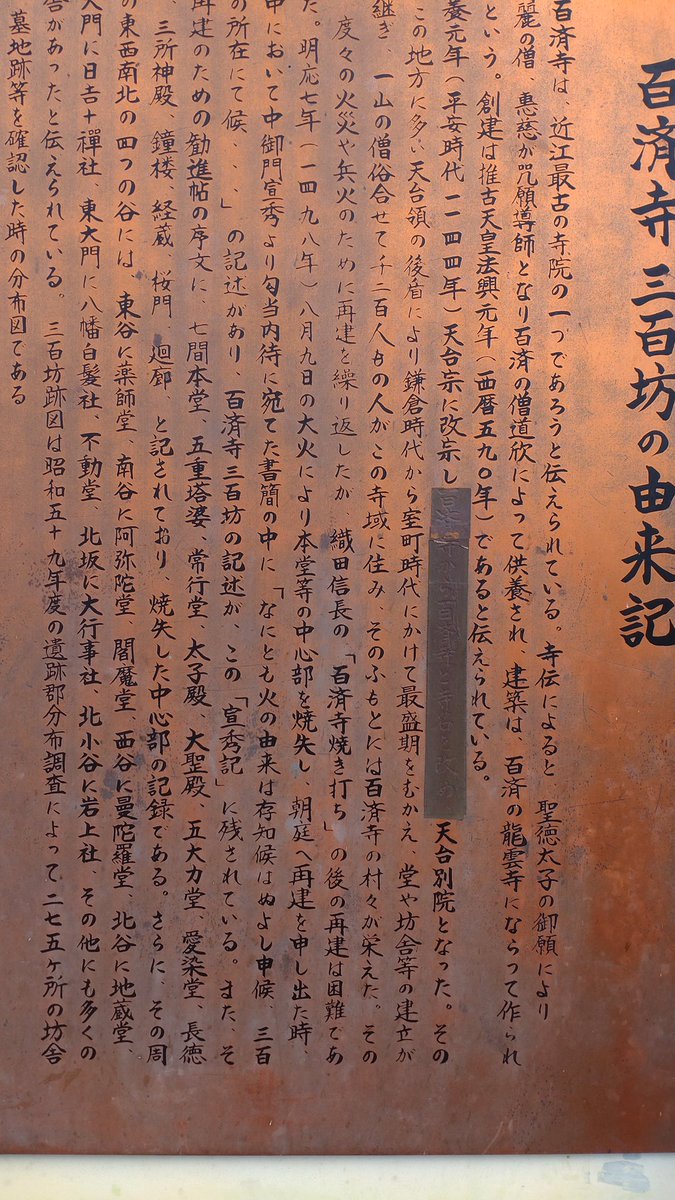 百済寺三百坊の由来記
百済寺は、近江最古の寺院の一つであろうと伝えられている。寺伝によると 聖徳太子の御願により
麗の僧、恵慈が咒願導師となり百済の僧道欣によって供養され、建築は、百済の龍雲寺にならって作られ
という。創建は推古天皇法興元年(西暦五九〇年)であると伝えられている。
養元年(平安時代 一一四四年)天台宗に改宗し 天台別院となった。その
この地方に多い天台領の後盾により鎌倉時代から室町時代にかけて最盛期をむかえ、堂や坊舎等の建立が
継ぎ、一山の僧俗合せて千二百人もの人がこの寺域に住み、そのふもとには百済寺の村々が栄えた。その
度々の火災や兵火のために再建を繰り返したが 織田信長の「百済寺焼き打ち」の後の再建は困難であ
た。明応七年(一四九八年)八月九日の大火により本堂等の中心部を焼失し、朝庭へ再建を申し出た時、
中において中御門宣秀より勾当内待に宛てた書簡の中に「なにとも火の由来は存知候はぬよし申候、三百
の所在にて候、、、」の記述があり、百済寺三百坊の記述が、この「宣秀記」に残されている。また、そ
再建のための勧進帖の序文に、七間本堂、五重塔婆、常行堂、太子殿、大聖殿、五大力堂、愛染堂、長徳
、三所神殿、鐘楼、経蔵、桜門 廻廊、と記されており、焼失した中心部の記録である。さらに、その周
の東西南北の四つの谷には 東谷に薬師堂、南谷に阿弥陀堂、閻魔堂、西谷に曼陀羅堂、北谷に地蔵堂、
大門に日吉十禅社、東大門に八幡白髪社、不動堂、北坂に大行事社、北小谷に岩上社、その他にも多くの
舎があったと伝えられている。三百坊跡図は昭和五十九年度の遺跡郡分布調査によって二七五ヶ所の坊舎
墓地跡等を確認した時の分布図である